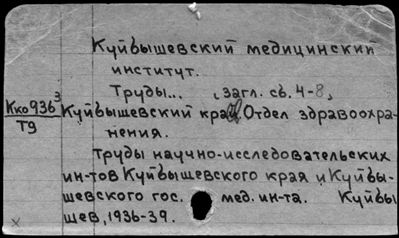 Куйбышевский медицинский
институт.
Труды... (загл. св. 4-8)
Кко936³
Т9
Куйбышевский край. Отдел здравоохра-
нения.
Труды научно-исследовательских
ин-тов Куйбышевского края и Куйбы-
шевского гос. мед. ин-та. Куйбы
шев, 1936-39.
x